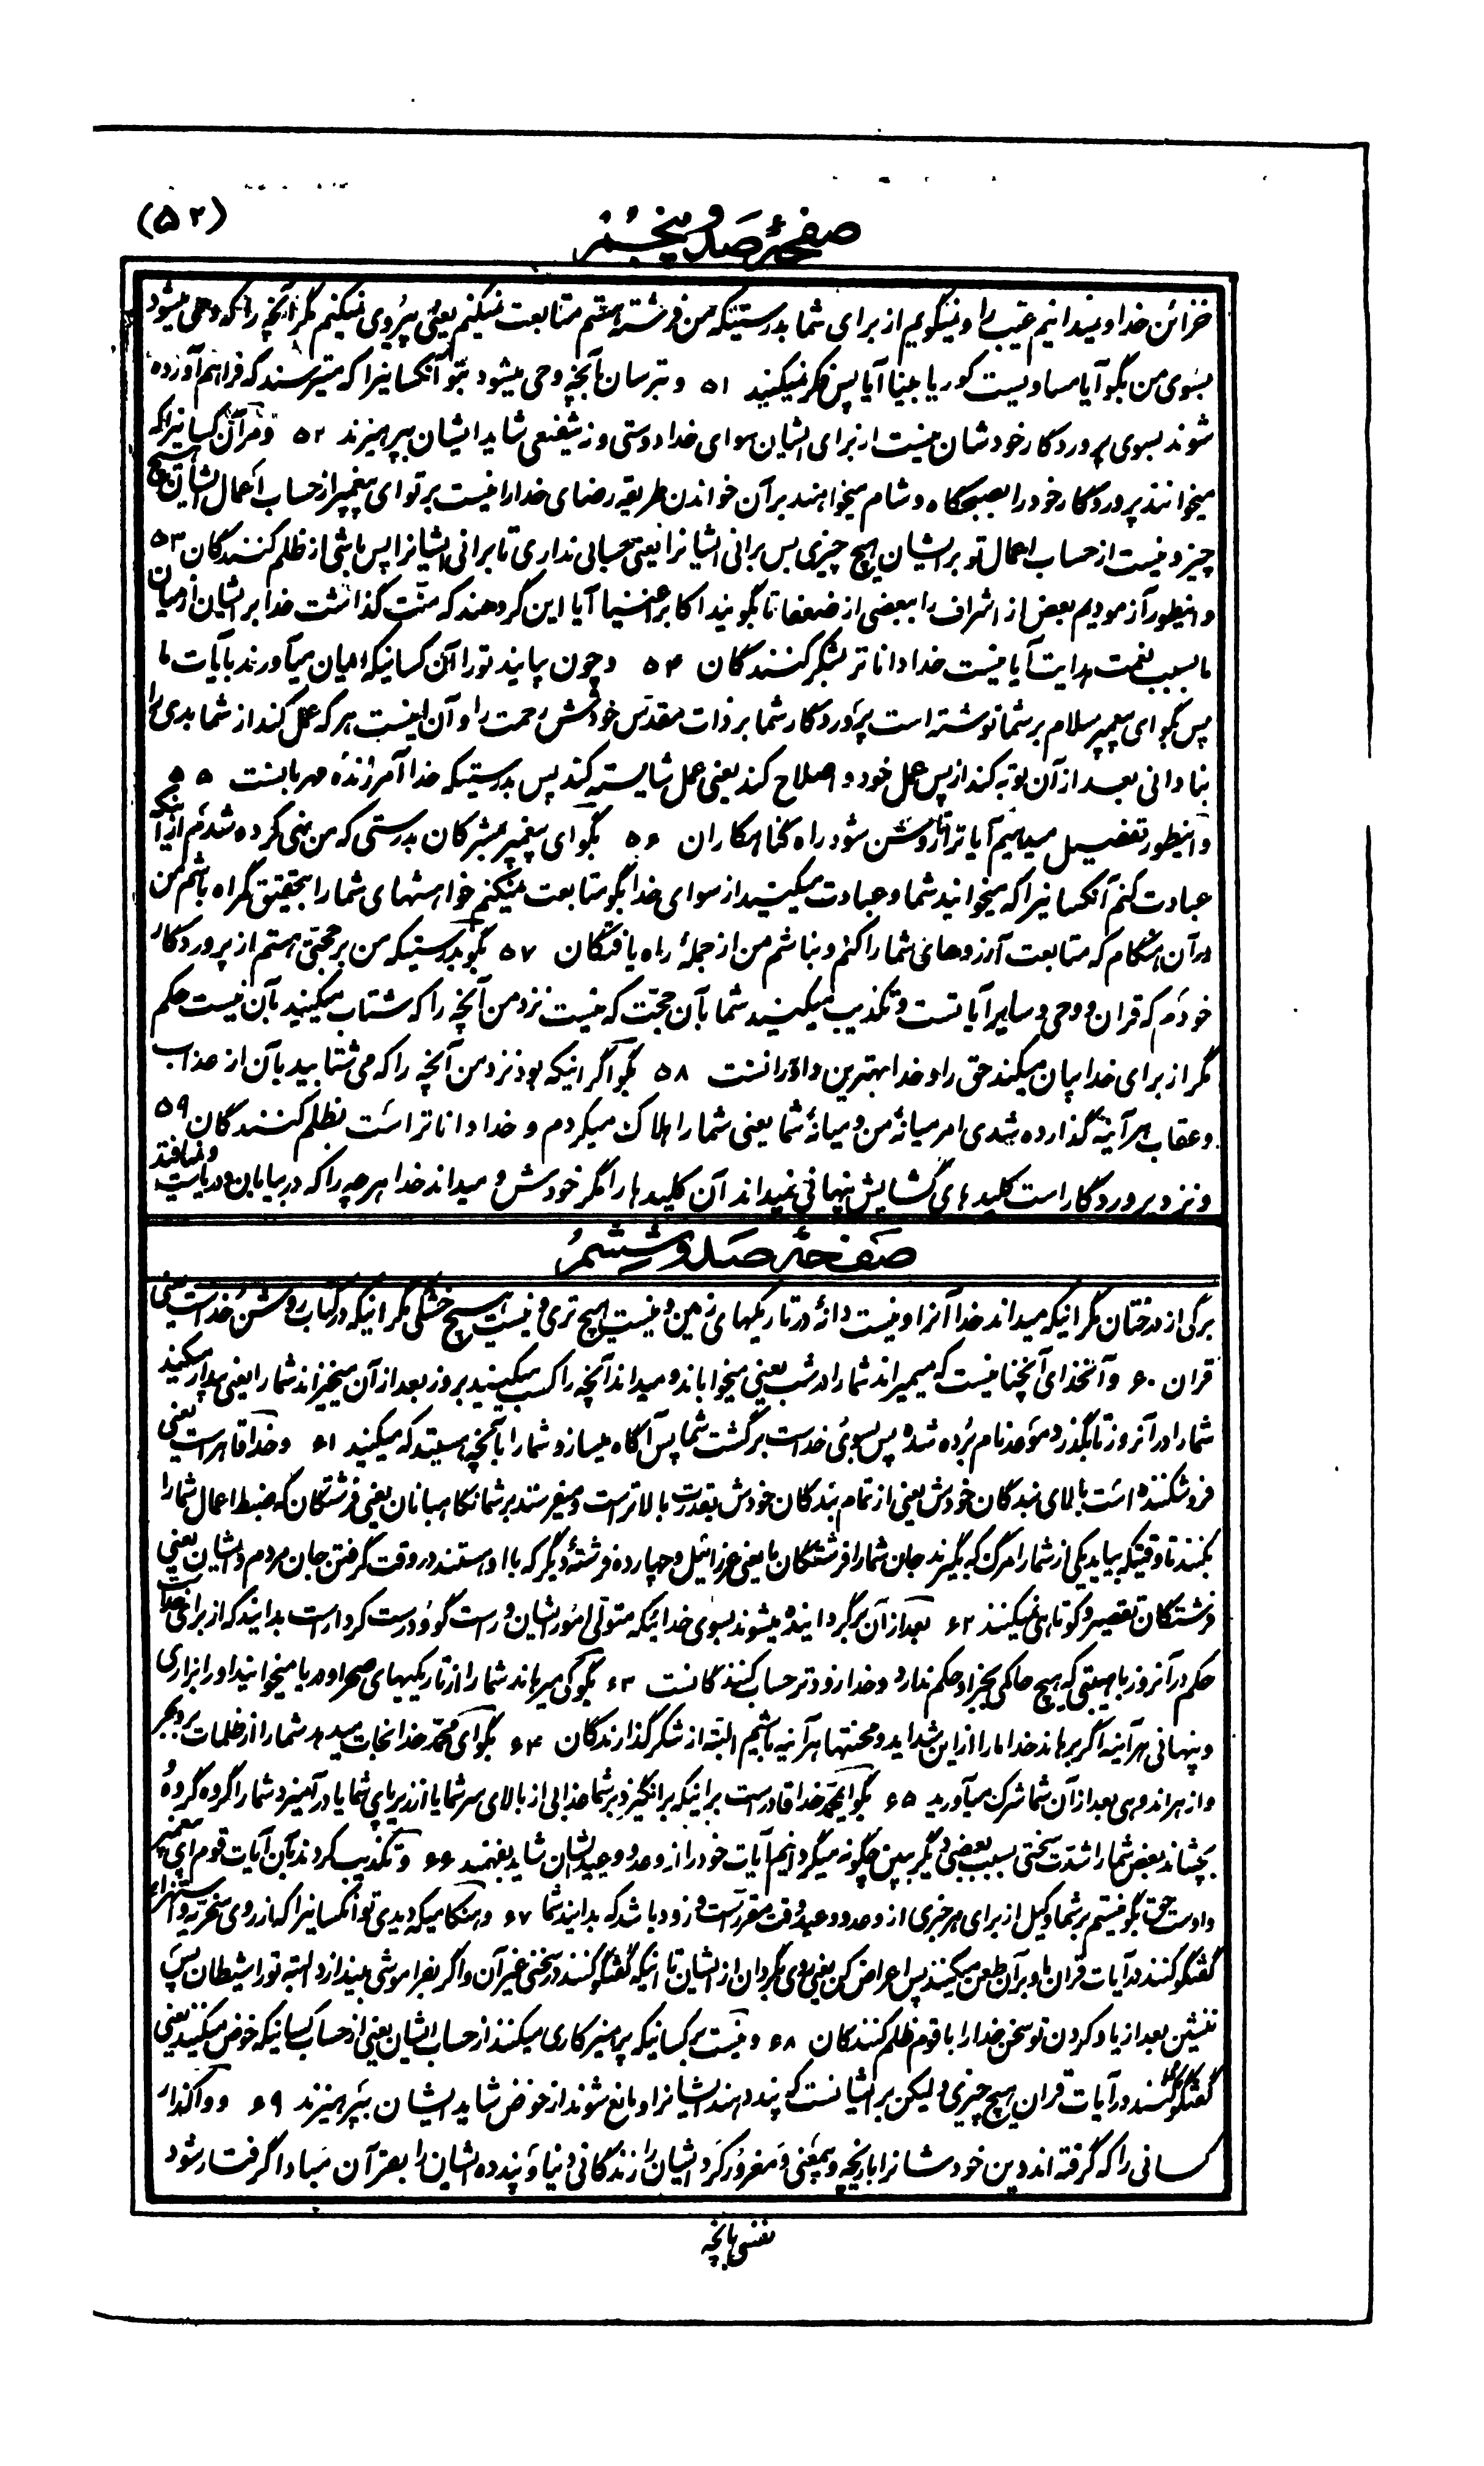 (۵۲)
صفحهٔ صد و پنجم
خزائن خدا و نمیدانیم غیب را و نمیگویم از برای شما بدرستیکه من فرشته هستم متابعت نمیکنم یعنی پیروی نمیکنم مگر آنچه را که وحی میشود
بسوی من بگو آیا مساویست کور یا بینا آیا پس فکر نمیکنید ۵۱ و بترسان بآنچه وحی میشود بتو آنکسانیرا که میترسند که فراهم آورده
شوند بسوی پروردگار خودشان نیست از برای ایشان سوای خدا دوستی و نه شفیعی شاید ایشان بپرهیزند ۵۲ و مران کسانیرا که
میخوانند پروردگار خود را بصبحگاه و شام میخواهند بر آن خواندن طریقه رضای خدا را نیست بر تو ای پیغمبر از حساب اعمال ایشان هیچ
چیز و نیست از حساب اعمال تو بر ایشان هیچ چیزی پس برانی ایشانرا یعنی حسابی نداری تا برانی ایشانرا پس باشی از ظلم کنندگان ۵۳
و اینطور آزمودیم بعض از اشراف را ببعضی از ضعفا تا بگویند اکابر اغنیا آیا این گروهند که منّت گذاشت خدا بر ایشان از میان
ما بسبب نعمت هدایت آیا نیست خدا داناتر بشکر کنندگان ۵۴ و چون بیایند تو را آن کسانیکه ایمان میآورند بآیات ما
پس بگو ای پیغمبر سلام بر شما نوشته است پروردگار شما بر ذات مقدّس خودش رحمت را و آن اینست هر که عمل کند از شما بدی را
بنادانی بعد از آن توبه کند از پس عمل خود و اصلاح کند یعنی عمل شایسته کند پس بدرستیکه خدا آمرزندهٔ مهربانست ۵۵
و اینطور تفصیل میدهیم آیات را تا روشن شود راه گناهکاران ۵۶ بگو ای پیغمبر بمشرکان بدرستی که من نهی کرده شده‌ام از اینکه
عبادت کنم آنکسانیرا که میخوانید شما و عبادت میکنید از سوای خدا بگو متابعت نمیکنم خواهشهای شما را بتحقیق گمراه باشم من
در آن هنگام که متابعت آرزوهای شما را کنم و نباشم من از جملهٔ راه یافتگان ۵۷ بگو بدرستیکه من بر حجّتی هستم از پروردگار
خودم که قران و وحی و سایر آیاتست و تکذیب میکنید شما بآن حجّت که نیست نزد من آنچه را که شتاب میکنید بآن نیست حکم
مگر از برای خدا بیان میکند حق را و خدا بهترین داورانست ۵۸ بگو اگر اینکه بود نزد من آنچه را که می شتابید بآن از عذاب
و عقاب هر آینه گذارده شدی امر میانهٔ من و میانهٔ شما یعنی شما را هلاک میکردم و خدا داناتر است بظلم کنندگان ۵۹
و نزد پروردگار است کلیدهای گشایش پنهانی نمیداند آن کلیدها را مگر خودش و میداند خدا هر چه را که در بیابان و دریاست و نمیافتد
صفحهٔ صد و ششم
برگی از درختان مگر اینکه میداند خدا آنرا و نیست دانهٔ در تاریکیهای زمین و نیست هیچ تری و نیست هیچ خشکی مگر اینکه در کتاب روشن خداست یعنی
قران ۶۰ و آنخدای آنچنانیست که میمیراند شما را در شب یعنی میخواباند و میداند آنچه را کسب میکنید بروز بعد از آن میخیزاند شما را یعنی بیدار میکند
شما را در آنروز تا بگذرد موعد نام برده شده پس بسوی خداست برگشت شما پس آگاه میسازد شما را بآنچه هستید که میکنید ۶۱ و خدا قاهر است یعنی
فرو شکننده است بالای بندگان خودش یعنی از تمام بندگان خودش بقدرت بالاتر است و میفرستد بر شما نگاهبانان یعنی فرشتگان که ضبط اعمال شما را
بکنند تا وقتیکه بیاید یکی از شما را مرگ که بگیرند جان شما را فرشتگان ما یعنی عزرائیل و چهارده فرشتهٔ دیگر که با او هستند در وقت گرفتن جان مردم و ایشان یعنی
فرشتگان تقصیر و کوتاهی نمیکنند ۶۲ بعد از آن برگردانیده میشوند بسوی خدائیکه متولّی امور ایشان و راست گو و درست کردار است بدانید که از برای خداست
حکم در آنروز باهیبتی که هیچ حاکمی بجز او حکم ندارد و خدا زودتر حساب کنندگانست ۶۳ بگو کی میرهاند شما را از تاریکیهای صحرا و دریا میخوانید او را بزاری
و پنهانی هر آینه اگر برهاند خدا ما را از این شداید و محنتها هر آینه باشیم البته از شکر گذارندگان ۶۴ بگو ای محمّد خدا نجات میدهد شما را از ظلمات بر و بحر
و از هر اندوهی بعد از آن شما شرک میآورید ۶۵ بگو ایمحمّد خدا قادر است بر اینکه بر انگیزد بر شما عذابی از بالای سر شما یا از زیر پای شما یا در آمیزد شما را گروه گروه
بچشاند بعض شما را شدّت سختی بسبب بعضی دیگر ببین چگونه میگردانیم آیات خود را از وعد و وعید ایشان شاید بفهمند ۶۶ و تکذیب کردند بآن آیات قوم ای پیغمبر
و اوست حق بگو نیستم بر شما وکیل از برای هر خبری از وعد و وعید وقت مقرر است و زود باشد که بدانید شما ۶۷ و هنگامیکه دیدی تو آنکسانیرا که از روی سخریّه و استهزاء
گفتگو کنند در آیات قران ما و بر آن طعن میکنند پس اعراض کن یعنی روی بگردان از ایشان تا اینکه گفتگو کنند در سخنی غیر آن و اگر بفراموشی بیندازد البته تو را شیطان پس
ننشین بعد از یاد کردن تو سخن خدا را با قوم ظلم کنندگان ۶۸ و نیست بر کسانیکه پرهیزکاری میکنند از حساب ایشان یعنی از حساب کسانیکه خوض میکنند یعنی
گفتگو کنند در آیات قران هیچ چیزی و لیکن بر ایشانست که پند دهند ایشانرا و مانع شوند از خوض شاید ایشان بپرهیزند ۶۹ و واگذار
کسانی را که گرفته اند دین خودشانرا بازیچه و بیمعنی و مغرور کرد ایشان را زندگانی دنیا و پند ده ایشان را بقرآن مبادا گرفتار شود
نفسی بآنچه